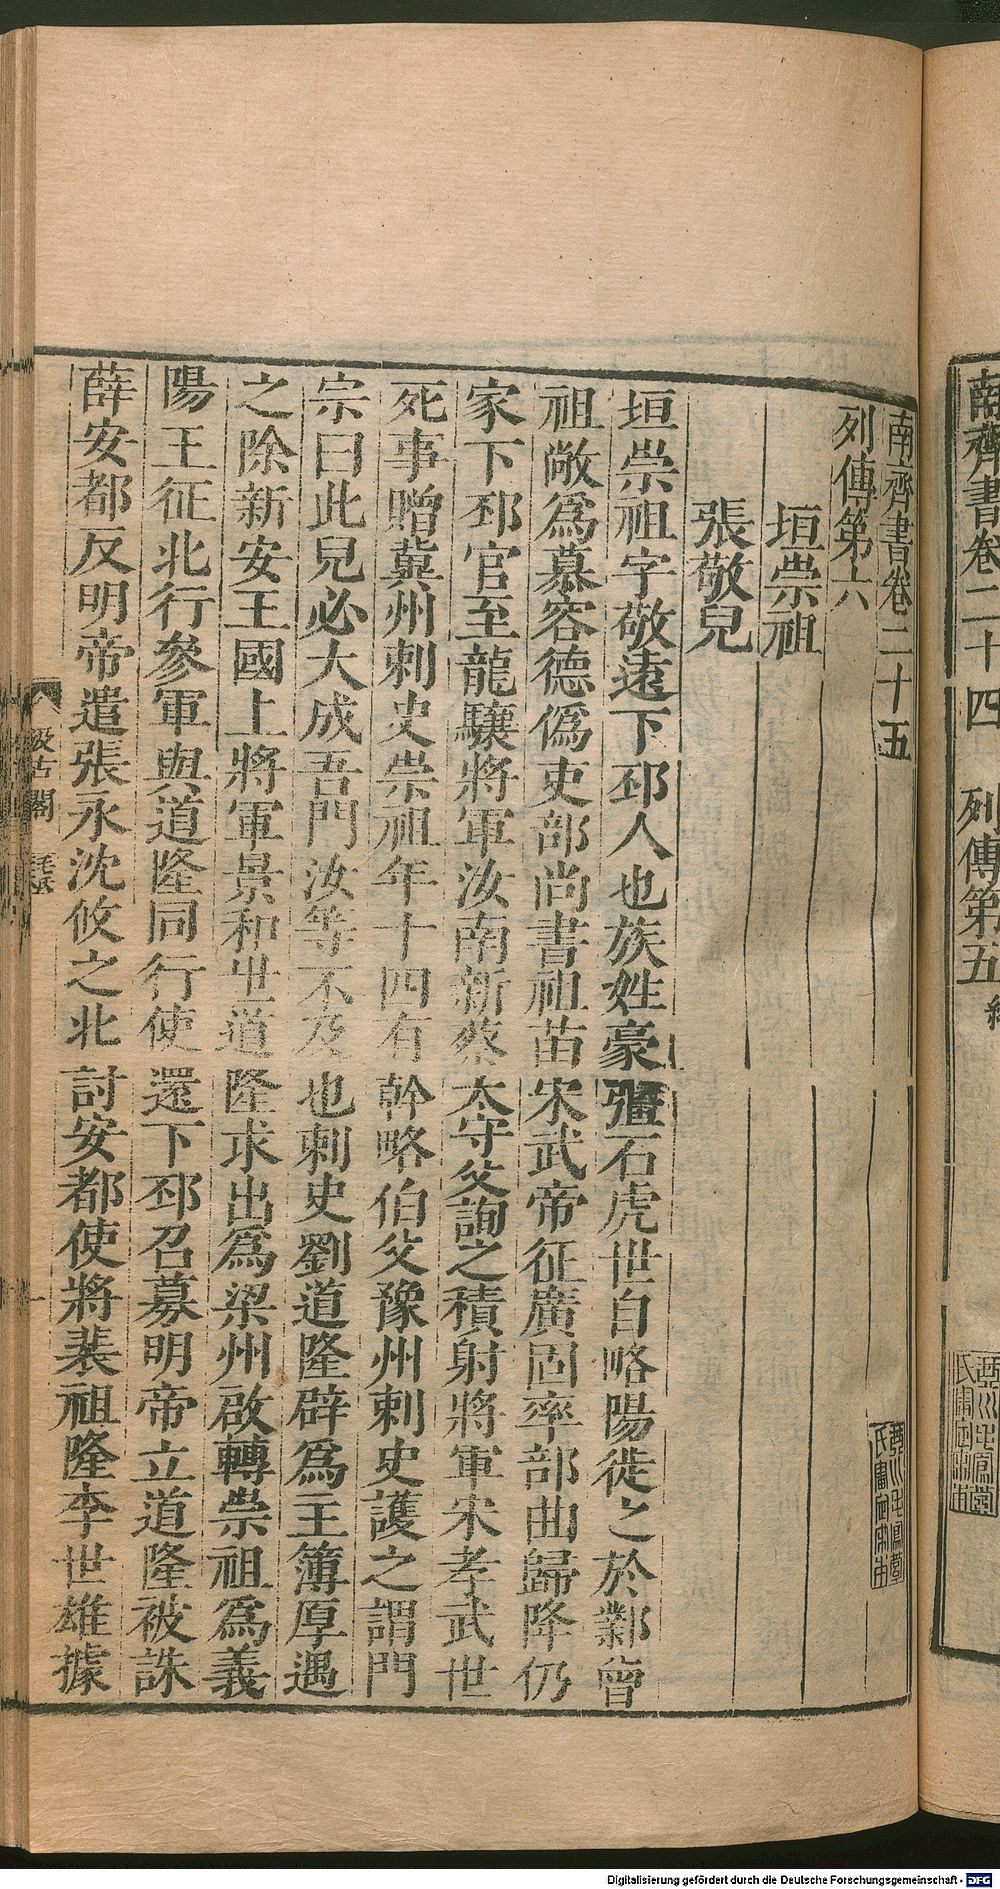 南齊書卷二十四　列傳第五　終
南齊書卷二十五
列傳第六
垣崇祖
張敬兒
垣崇祖字敬遠下邳人也族姓豪彊石虎世自略陽徙之於鄴曾
祖敞爲慕容德僞吏部尚書祖苗宋武帝征廣固率部曲歸降仍
家下邳官至龍驤將軍汝南新蔡太守父詢之積射將軍宋孝武世
死事贈冀州刺史崇祖年十四有幹略伯父豫州刺史護之謂門
宗曰此兒必大成吾門汝等不及也刺史劉道隆辟爲主簿厚遇
之除新安王國上將軍景和世道隆求出爲梁州啟轉崇祖爲義
陽王征北行參軍與道隆同行使還下邳召募明帝立道隆被誅
薛安都反明帝遣張永沈攸之北討安都使將裴祖隆李世雄據
汲古閣
毛氏
一
Digitalisierung gefördert durch die Deutsche Forschungsgemeinschaft - DFG